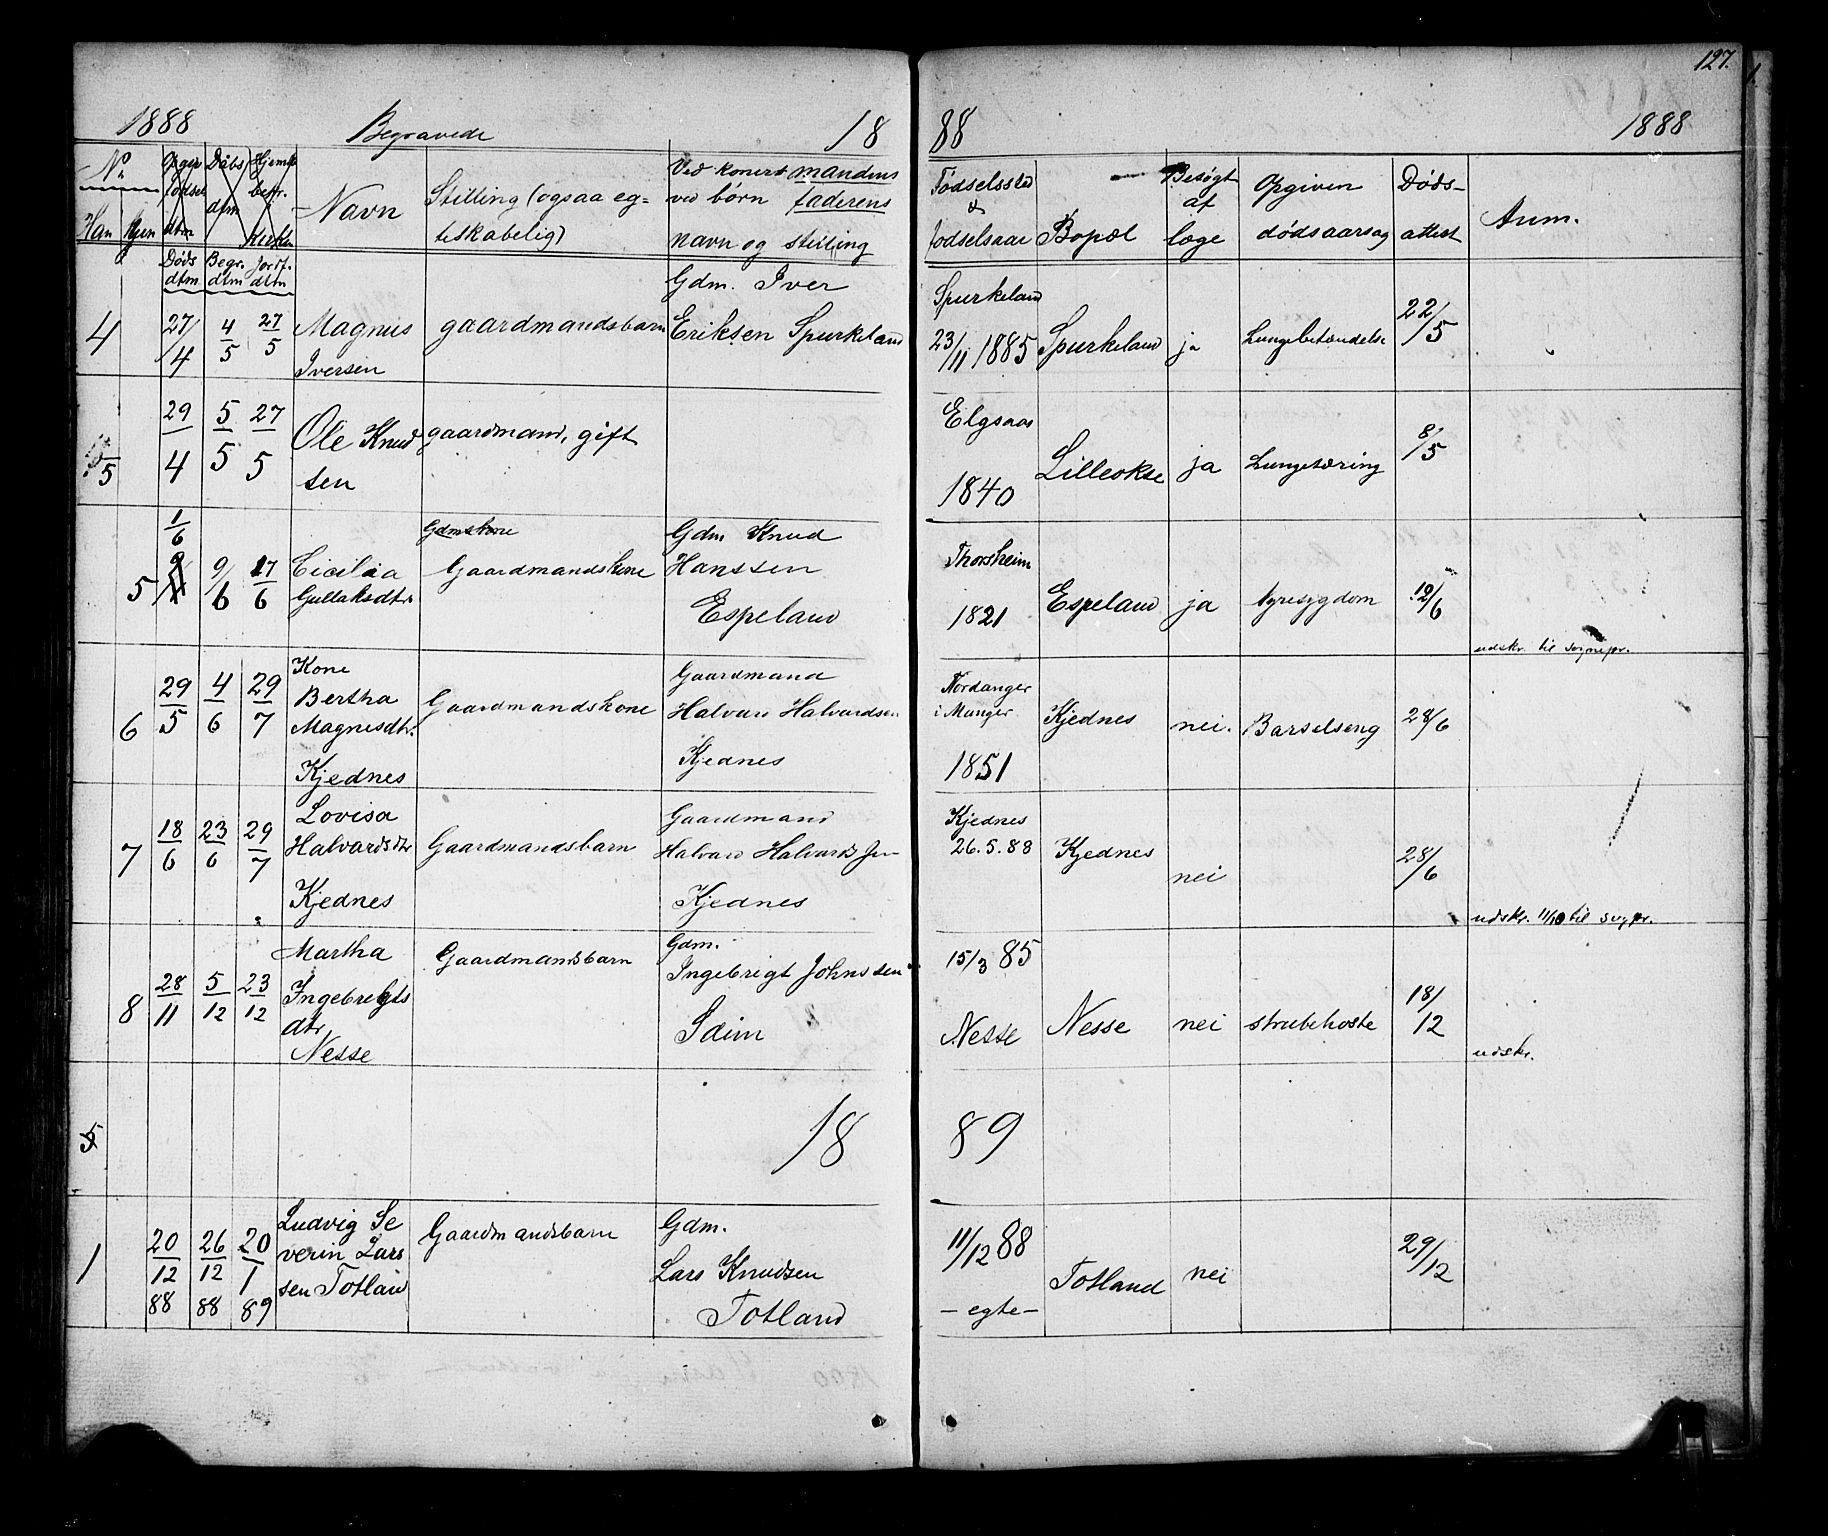 127.
1888 Begravede 18 88 1888
No
Han Kjøn
Opgiv fødsel dtm
Døds dtm
Daabs dtm
Begr. dtm
Hjemme
Jordf. dtm
Navn
Stilling (ogsaa eg=
teskabelig)
Ved koner mandens
ved børn faderens
navn og stilling
Fødselssted
&
fødselsaar
Bopæl
Besøgt
af
læge
Opgiven
dødsaarsag
Døds-
attest
Anm.
4 27/4 4/5 27/5
Magnus
Iversen
gaardmandsbarn
Gdm. Iver
Eriksen Spurkeland
Spurkeland
23/11 1885
Spurkeland
ja
Lungebetændelse
22/5
5 29/4 5/5 27/5
Ole Knud
sen
gaardmand, gift
Elgsaas
1840
Lilleokse
ja
Lungetæring
8/5
1/6
5 9/6 17/6
Cicilia
Gullaksdtr.
Gdmskone
Gaardmandskone
Gdm Knud
Hanssen
Espeland
Thorsheim
1821
Espeland
ja
nyresygdom
12/6
udskr. til sognepr.
6 29/5 4/6 29/7
Kone
Bertha
Magnesdtr.
Kjednes
Gaardmandskone
Gaardmand
Halvard Halvardsen
Kjednes
Nordanger
i Manger
1851
Kjednes
nei.
Barselseng
28/6
7 18/6 23/6 29/7
Lovisa
Halvardsdtr
Kjednes
Gaardmandsbarn
Gaardmand
Halvard Halvards Jen
Kjednes
Kjednes
26.5.88
Kjednes
nei
28/6
udskr. 11/10 til sogpr.
8 28/11 5/12 23/12
Martha
Ingebregts
dtr
Nesse
Gaardmandsbarn
Gdm.
Ingebrigt Johnssen
Idim
15/3 85
Nesse
Nesse
nei
strubehoste
18/12
udskr.
5
18 89
1 20/12 88 26/12 88 20/1 89
Ludvig Se
verin Lars
sen Totland
Gaardmandsbarn
Gdm.
Lars Knudsen
Totland
11/12 88
- egte -
Totland
nei
29/12